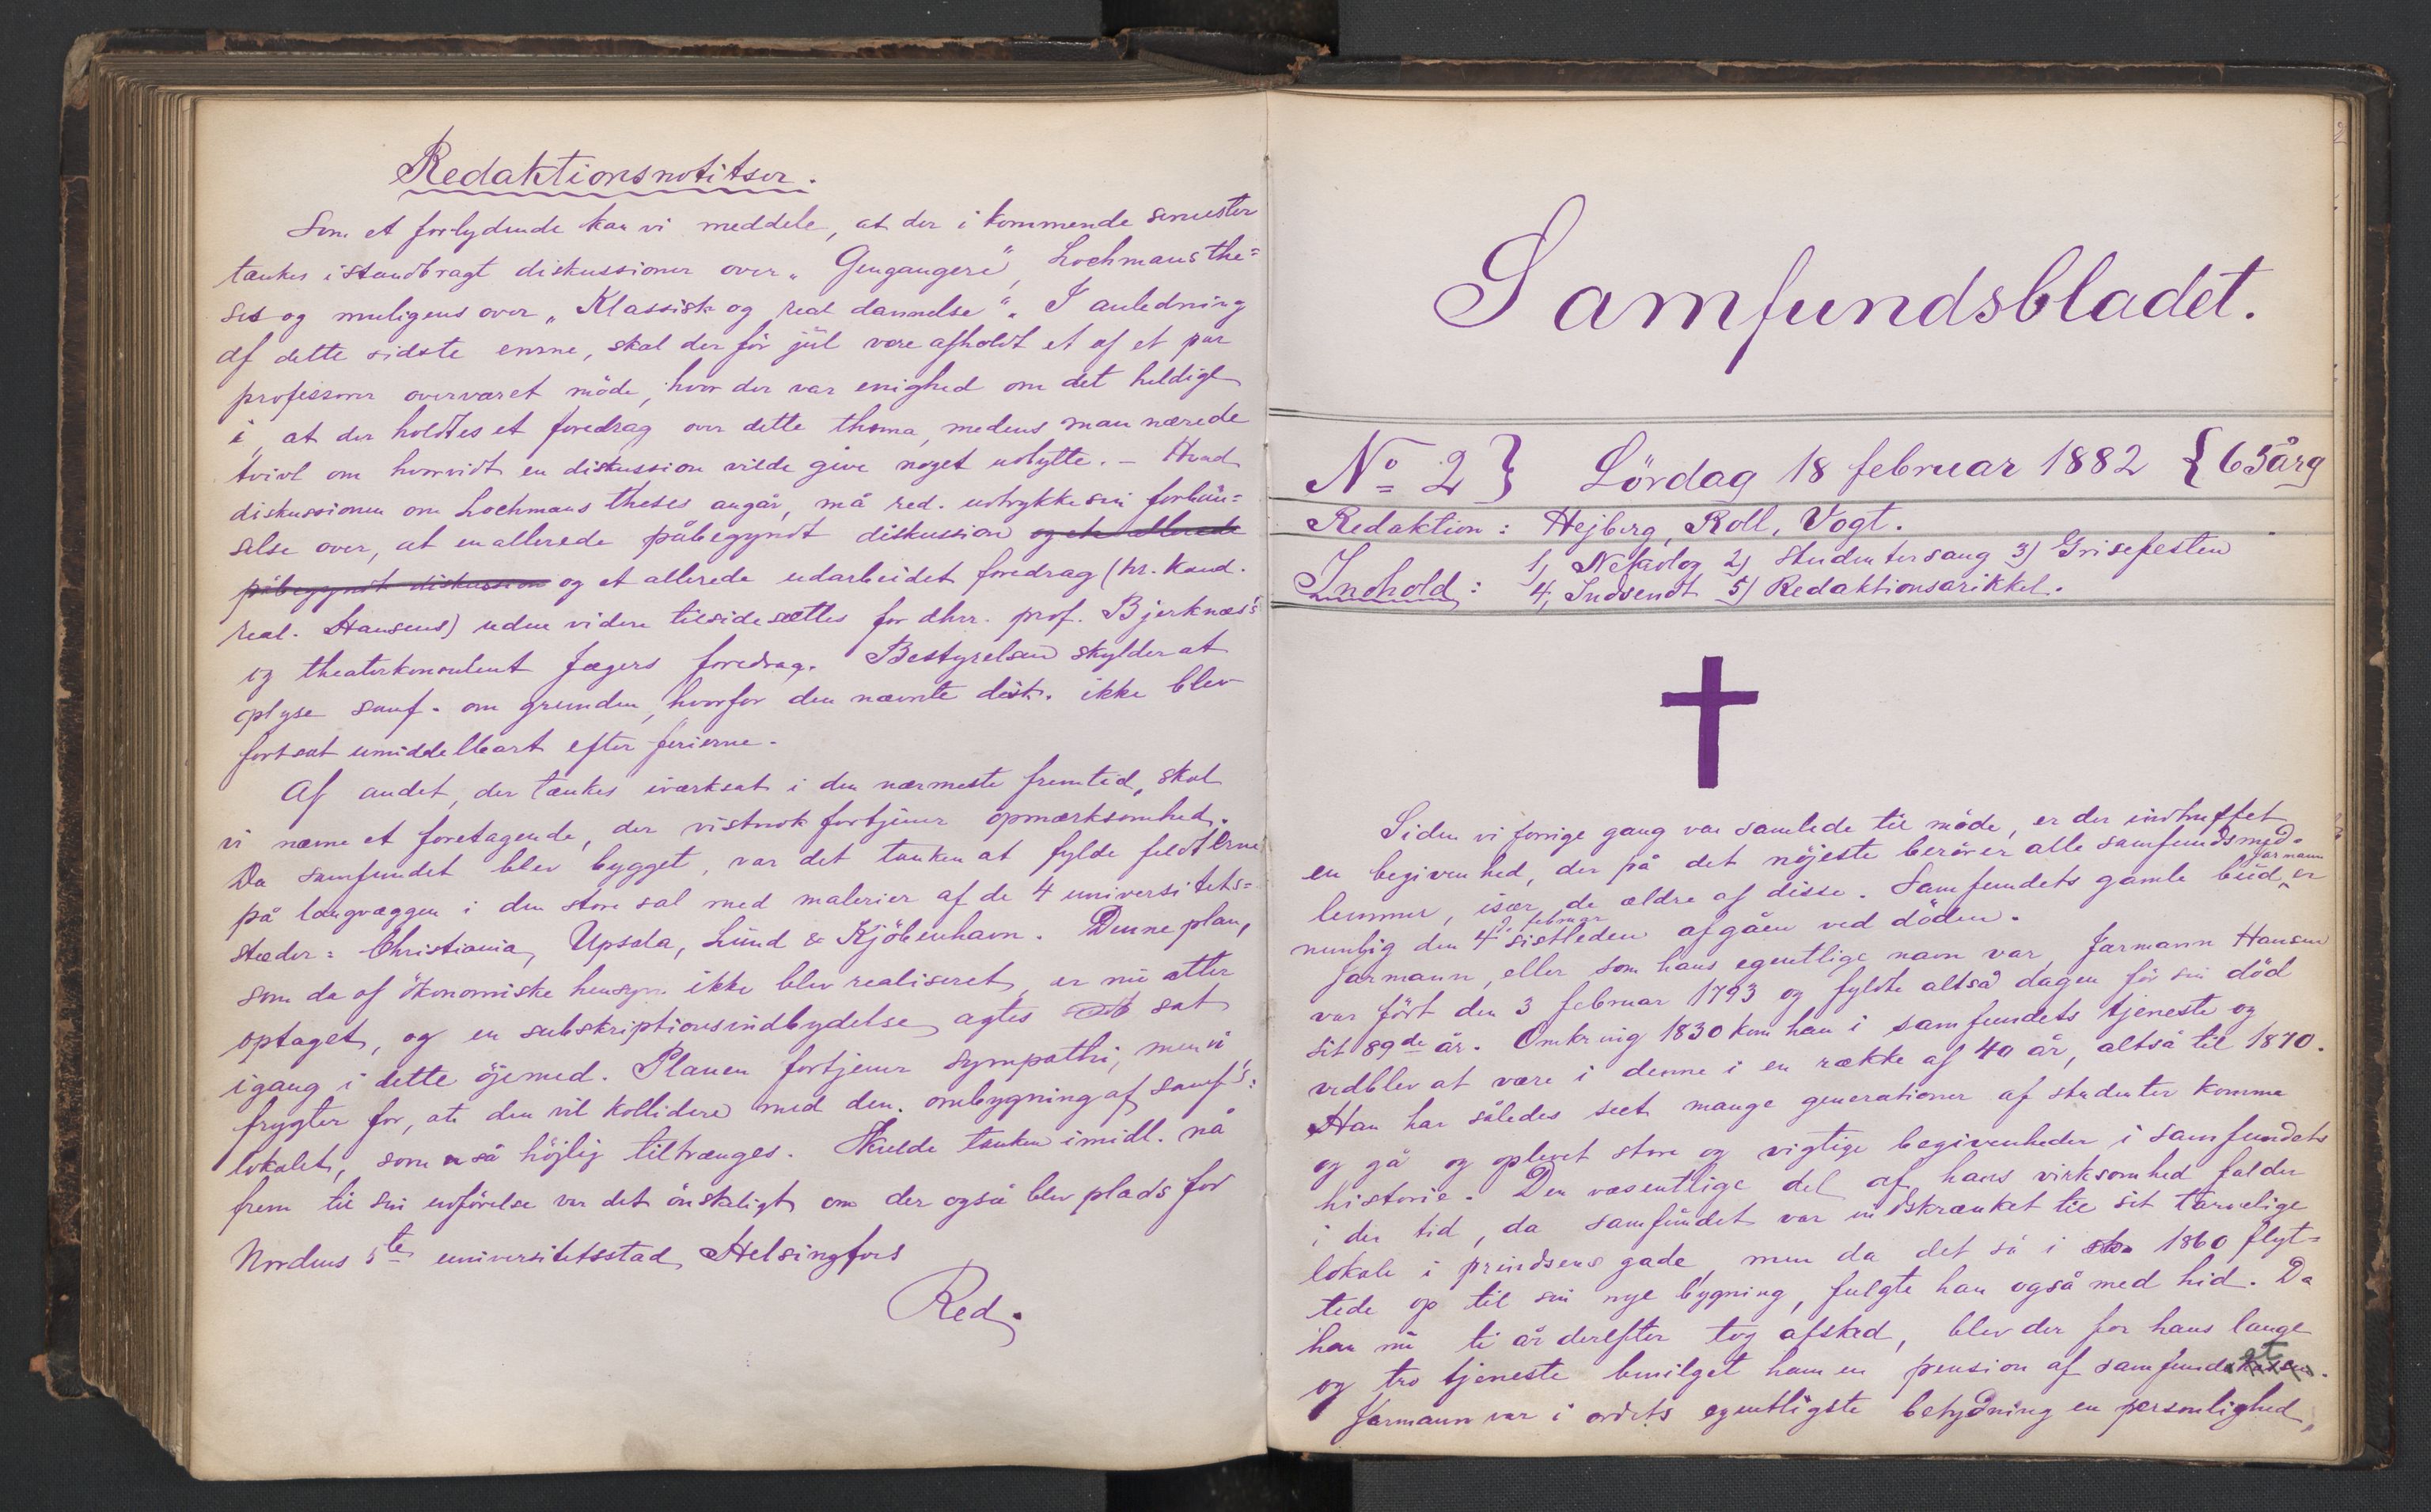 Redaktionsnotitser.
Som et forlydende kan vi meddele, at der i kommende semester
tænkes istandbragt diskussioner over „Gengangere“, Lochmans the=
ses og muligens over „Klassisk og real dannelse“. I anledning
af dette sidste emne, skal der før jul være afholdt et af et par
professorer overværet møde, hvor der var enighed om det heldige
i, at der holdtes et foredrag over dette thema, medens man nærede
tvivl om hvorvidt en diskussion vilde give noget udbytte. – Hvad
diskussionen om Lochmans theses angår, må red. udtrykke sin forbau=
selse over, at en allerede påbegyndt diskussion og en allerede
påbegyndt diskussion og et allerede udarbeidet foredrag (hr. kand.
real. Hansens) uden videre tilsidesættes for dhrr. prof. Bjerknæs's
og theaterkonsulent Jægers foredrag. Bestyrelsen skylder at
oplyse samf. om grunden, hvorfor den nævnte disk. ikke blev
fortsat umiddelbart efter ferierne.
Af andet, der tænkes iværksat i den nærmeste fremtid, skal
vi nævne et foretagende, der vistnok fortjener opmærksomhed.
Da samfundet blev bygget, var det tanken at fylde feldterne
på langvæggen i den store sal med malerier af de 4 universitets=
stæder: Christiania, Upsala, Lund & Kjöbenhavn. Denne plan,
som da af ökonomiske hensyn ikke blev realiseret, er nu atter
optaget, og en subskriptionsindbydelse agtes sat
igang i dette öjemed. Planen fortjener sympathi, men vi
frygter for, at den vil kollidere med den ombygning af samf's:
lokalet, som så höjlig tiltrænges. Skulde tanken imidl. nå
frem til sin udförelse var det önskeligt om der også blev plads for
Nordens 5te universitetsstad, Helsingfors
Red.
Samfundsbladet.
No 2 } Lördag 18 februar 1882 { 65 årg
Redaktion: Hejberg, Roll, Vogt.
Indhold: 1, Nekrolog 2, Studentersang 3) Grisefesten
4, Indsendt 5) Redaktionsarikkel.
Siden vi forrige gang var samlede til møde, er der indtruffet
en begivenhed, der på det nöjeste berører alle samfundsmed=
lemmer, især de ældre af disse. Samfundets gamle bud, Jarmann er
nemlig den 4 februar sistleden afgåen ved döden.
Jarmann, eller som hans egentlige navn var, Jarmann Hansen
var fört den 3 februar 1793 og fyldte altså dagen för sin död
sit 89de år. Omkring 1830 kom han i samfundets tjeneste og
vedblev at være i denne i en række af 40 år, altså til 1870.
Han har således seet mange generationer af studenter komme
og gå og oplevet store og vigtige begivenheder i samfundets
historie. Den væsentlige del af hans virksomhed falder
i den tid, da samfundet var indskrænket til sit tarvelige
lokale i prindsens gade, men da det så i 1860 flyt=
tede op til sin nye bygning, fulgte han også med hid. Da
han nu ti år derefter tog afsked, blev der for hans lange
og tro tjeneste bevilget ham en pension af samfundet.
Jarmann var i ordets egentligste betydning en personlighed,